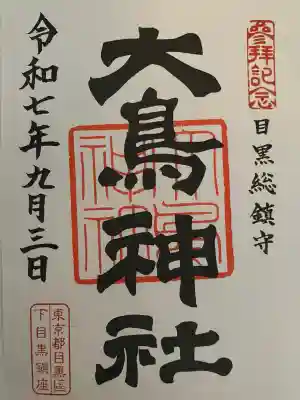 參拜記念
目黒総鎮守
大鳥神社
大鳥神社
令和七年九月三日
東京都目黒區
下目黒鎮座